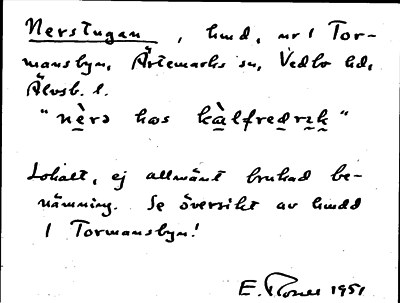 Nerstugan, hmd, nr 1 Tor-
mansbyn, Ärtemarks sn, Vedbo hd,
Älvsb. l.
"nè̱rə hos kà̱lfredrɪk"
Lokalt, ej allmänt brukad be-
nämning. Se översikt av hmdd
i Tormansbyn!
E. 1951